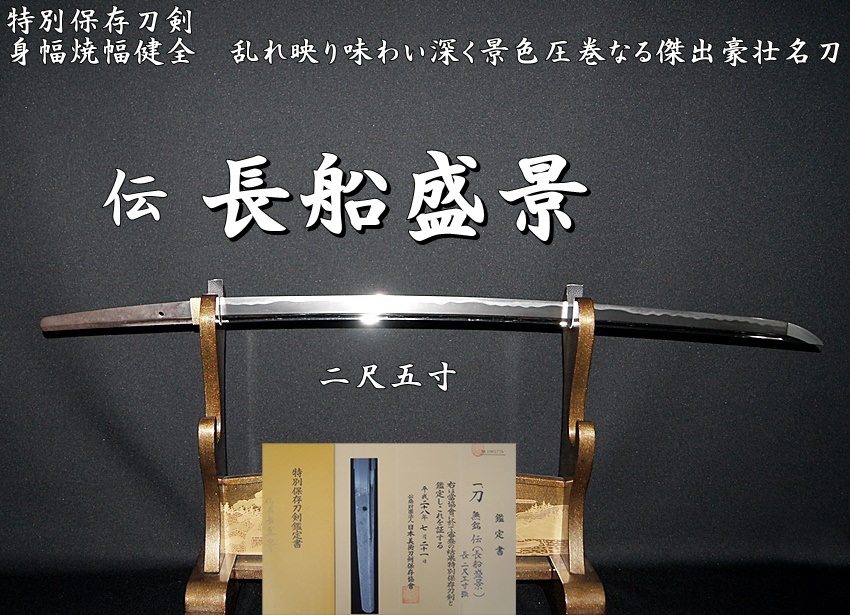 特別保存刀剣
身幅焼幅健全　乱れ映り味わい深く景色圧巻なる傑出豪壮名刀
伝 長船盛景
二尺五寸
鑑定書
一、刀 無銘 伝(長船盛景)
長二尺五寸強
右は當協會に於て審査の結果特別保存刀剣と
鑑定しこれを証する
平成二十八年七月二十一日
公益財団法人日本美術刀剣保存協會
特別保存刀剣鑑定書